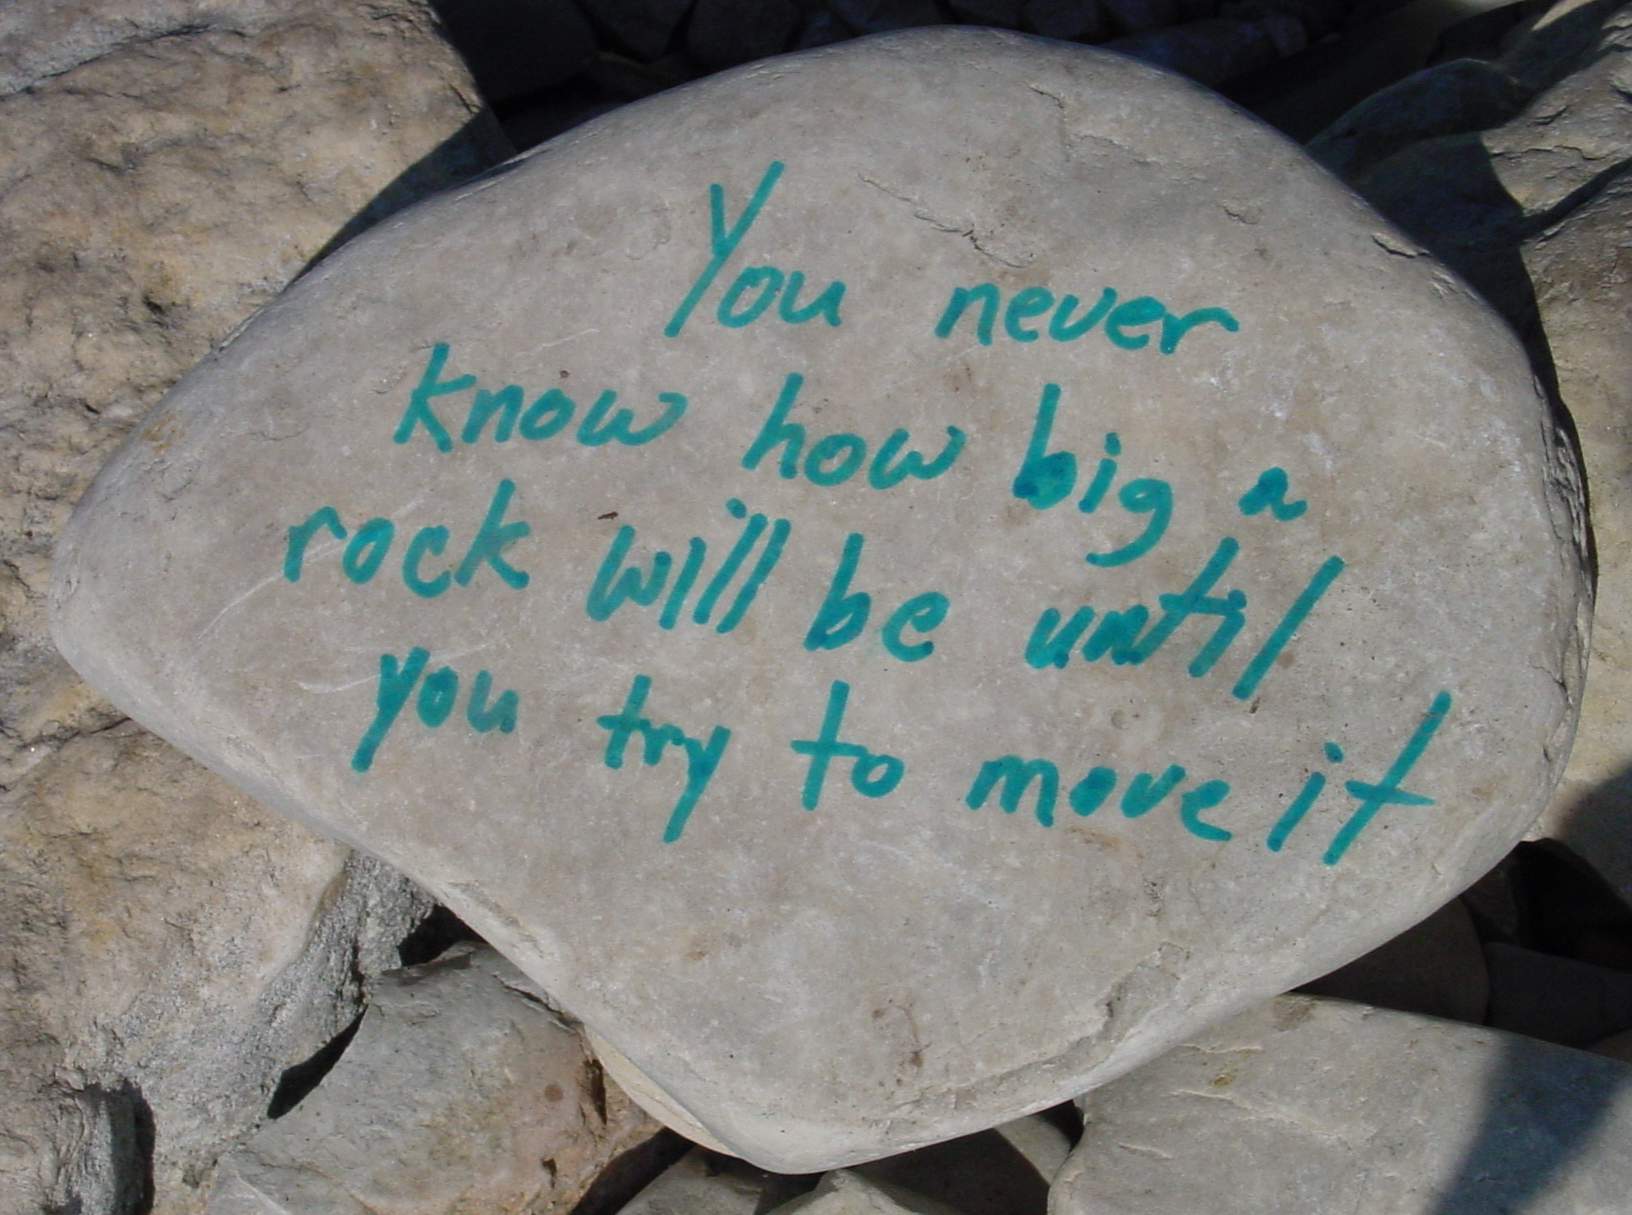 You never
know how big a
rock will be until
you try to move it